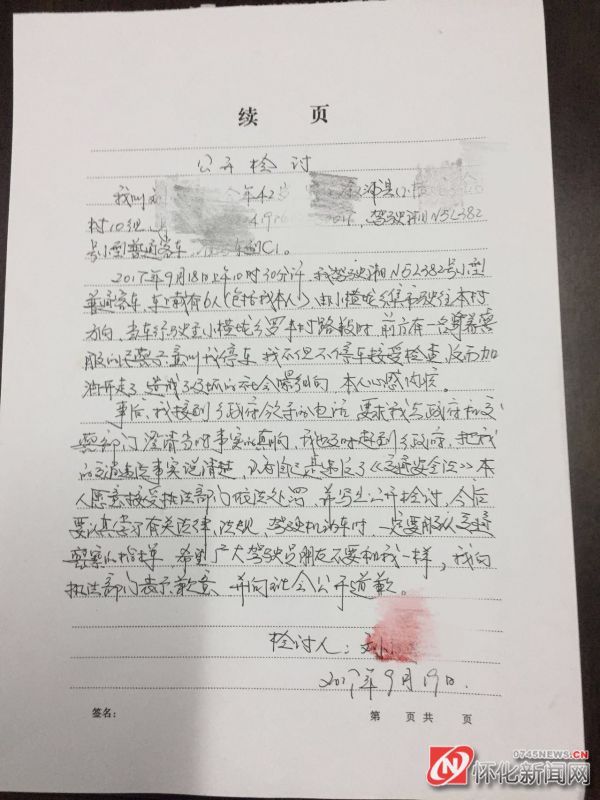 续 页
公开检讨
我叫 今年42岁
村10组, 驾驶湘N5L382
号小型普通客车, C1。
2017年9月18日上午10时30分许,我驾驶湘N5L382号小型
普通客车,车上载有6人(包括我本人)由小横垅乡集市驶往本村
方向,当车行驶至小横垅乡罗 村路段时,前方有一台穿着警
服的民警示意叫我停车,我不但不停车接受检查,反而加
油开走了,造成了很坏的社会影响,本人心感内疚。
事后,我接到乡政府 的电话,要求我去政府和交
警部门澄清当时事实的真相,我也及时赶到乡政府,把我
的交通违法事实说清楚, 自己是违反了《交通安全法》本
人愿意接受执法部门依法处罚,并写出公开检讨,今后
要认真学习有关法律、法规,驾驶机动车时,一定要服从交通
警察的指挥,希望广大驾驶员朋友不要和我一样,我向
执法部门表示歉意,并向社会公开道歉。
检讨人:刘小
2017年9月19日.
签名: 第 页 共 页
0745NEWS.CN
怀化新闻网